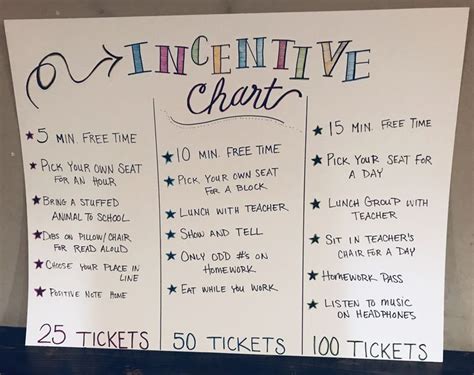 INCENTIVE
Chart
5 MIN. FREE TIME
PICK YOUR OWN SEAT
FOR AN HOUR
BRING A STUFFED
ANIMAL TO SCHOOL
DIBS ON PILLOW/CHAIR
FOR READ ALOUD
CHOOSE YOUR PLACE IN
LINE
POSITIVE NOTE HOME
25 TICKETS
10 MIN. FREE TIME
PICK YOUR OWN SEAT
FOR A BLOCK
LUNCH WITH TEACHER
SHOW AND TELL
ONLY ODD #'S ON
HOMEWORK
EAT WHILE YOU WORK
50 TICKETS
15 MIN. FREE TIME
PICK YOUR SEAT FOR
A DAY
LUNCH GROUP WITH
TEACHER
SIT IN TEACHER'S
CHAIR FOR A DAY
HOMEWORK PASS
LISTEN TO MUSIC
ON HEADPHONES
100 TICKETS